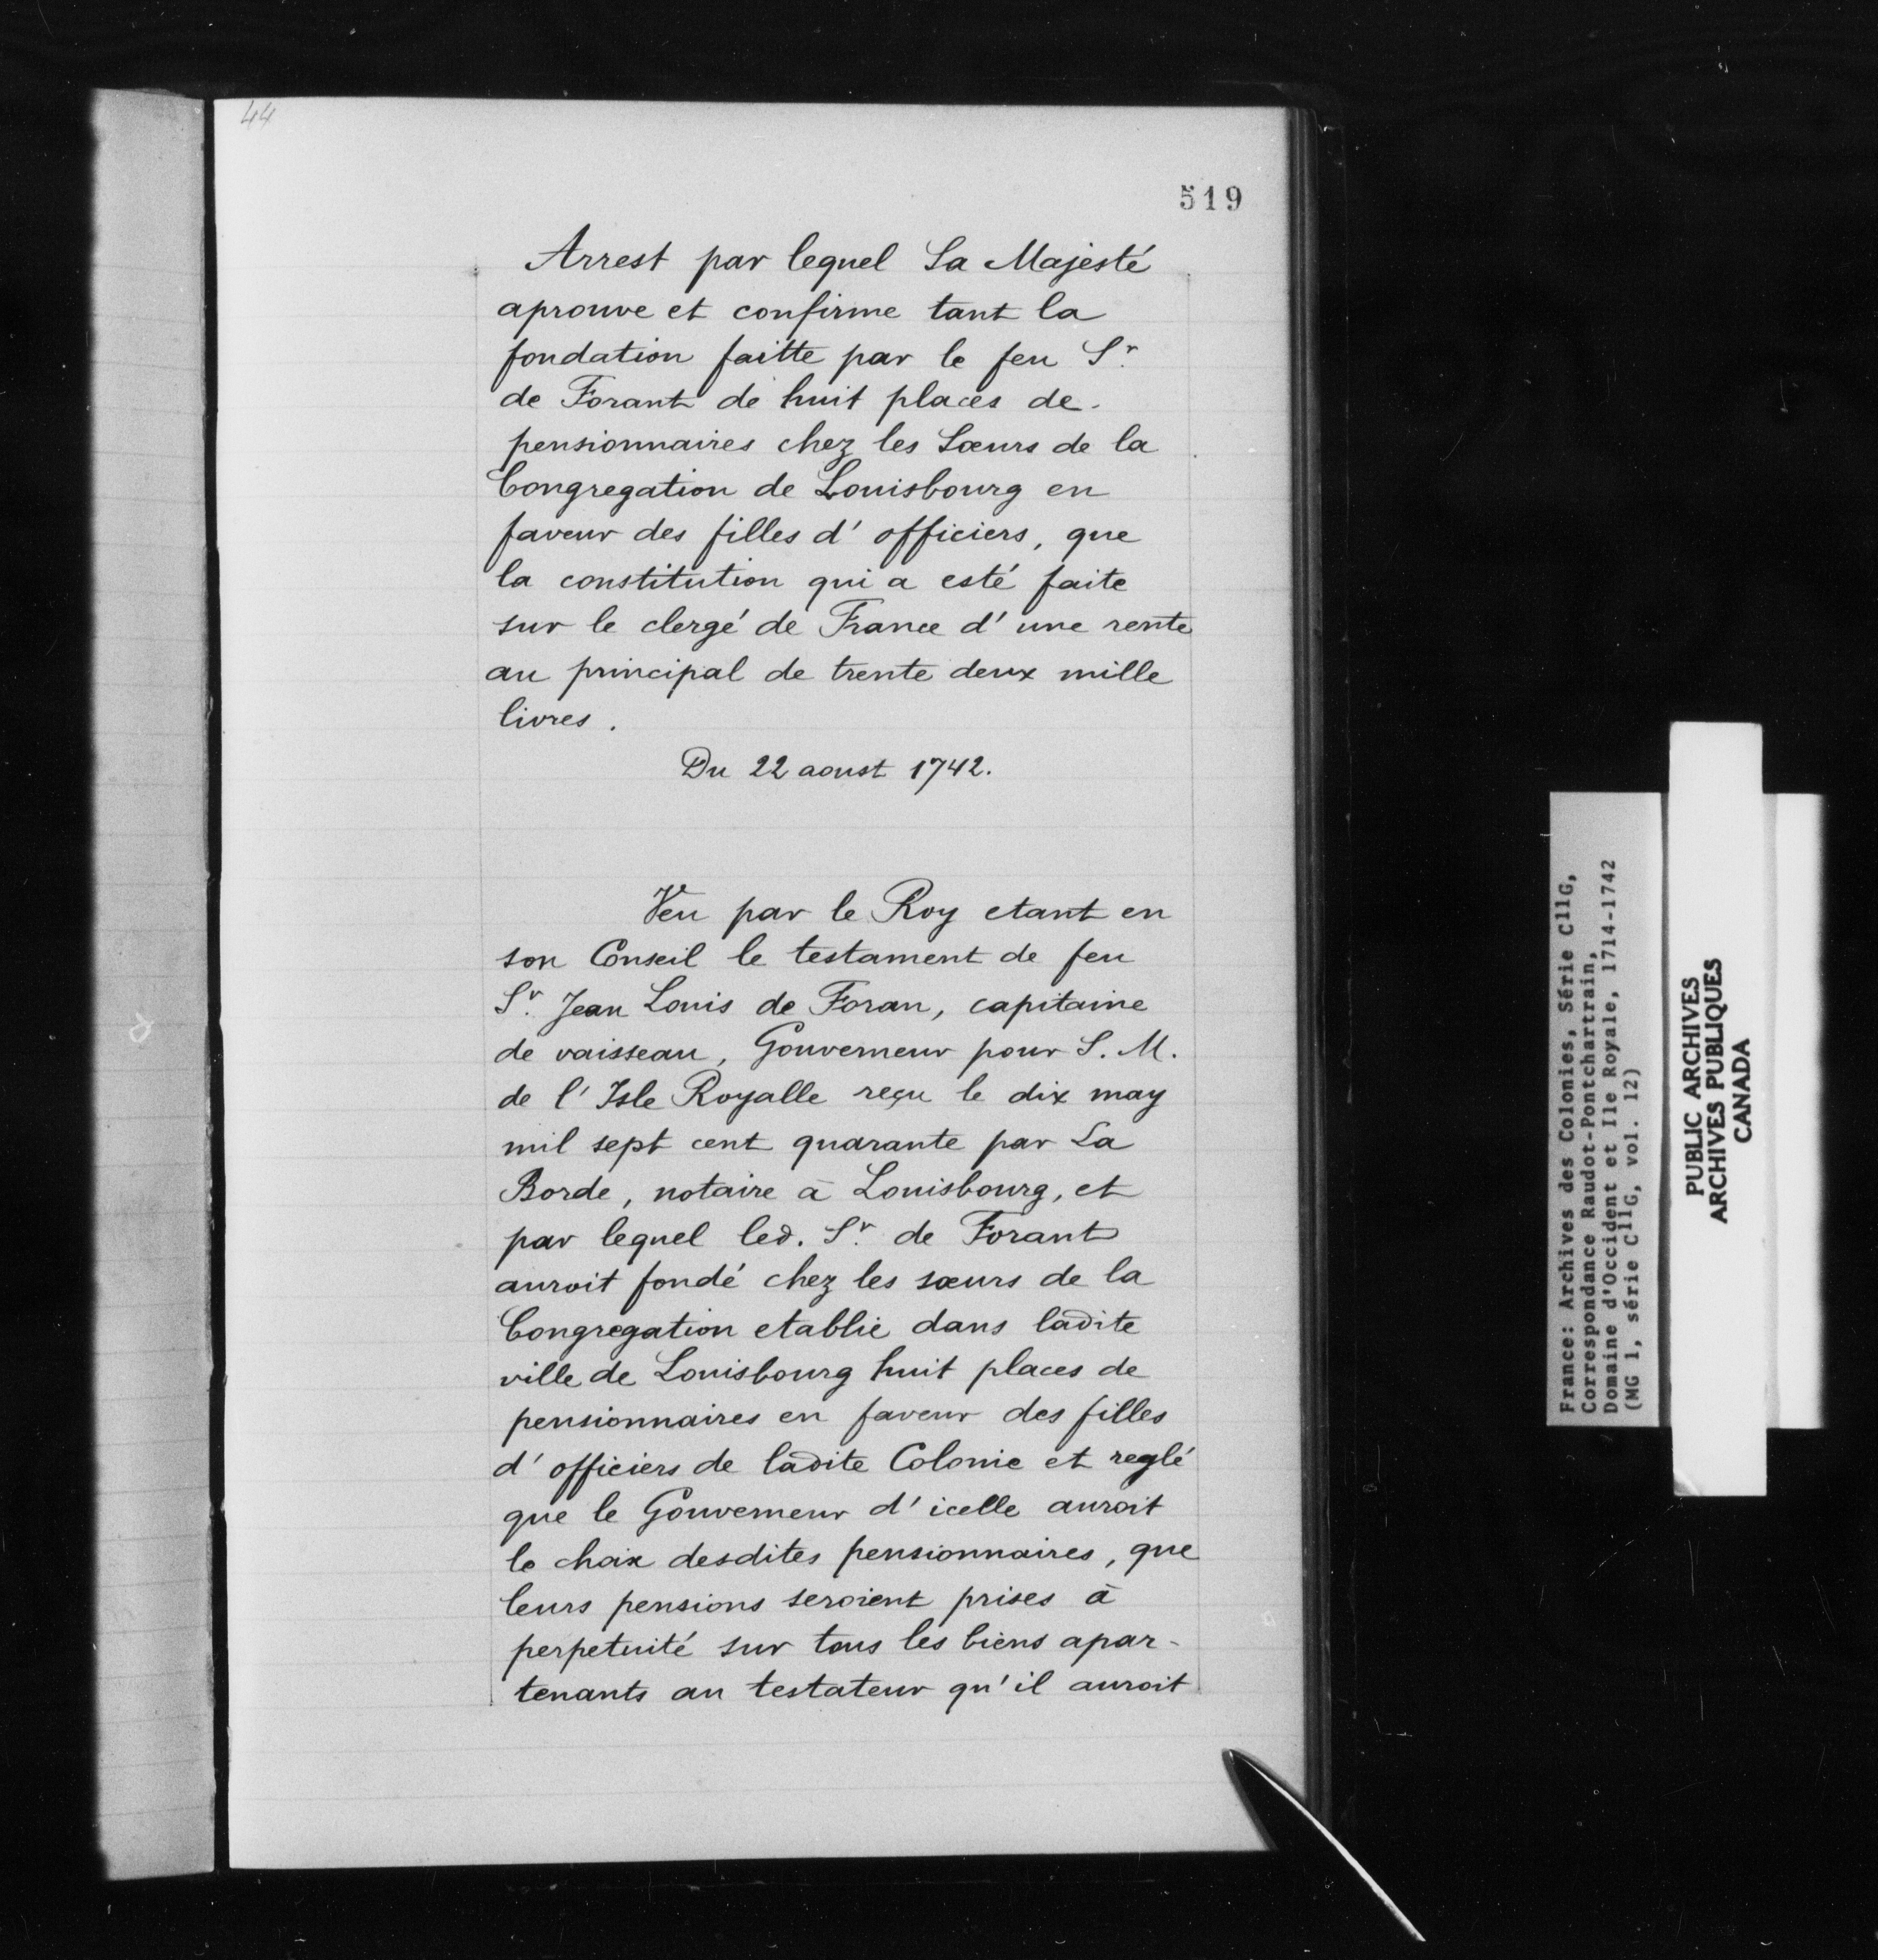 44
519
Arrest par lequel Sa Majesté
aprouve et confirme tant la
fondation faitte par le feu Sr.
de Forant de huit places de
pensionnaires chez les Sœurs de la
Congregation de Louisbourg en
faveur des filles d'officiers, que
la constitution qui a esté faite
sur le clergé de France d'une rente
au principal de trente deux mille
livres.
Du 22 aoust 1742.
Veu par le Roy etant en
son Conseil le testament de feu
Sr. Jean Louis de Foran, capitaine
de vaisseau, Gouverneur pour S. M.
de l'Isle Royalle reçu le dix may
mil sept cent quarante par La
Borde, notaire à Louisbourg, et
par lequel led. Sr. de Forant
auroit fondé chez les sœurs de la
Congregation etablie dans ladite
ville de Louisbourg huit places de
pensionnaires en faveur des filles
d'officiers de ladite Colonie et reglé
que le Gouverneur d'icelle auroit
le choix desdites pensionnaires, que
leurs pensions seroient prises à
perpetuité sur tous les biens apar-
tenants au testateur qu'il auroit
France: Archives des Colonies, Série C11G,
Correspondance Raudot-Pontchartrain,
Domaine d'Occident et Ile Royale, 1714-1742
(MG 1, série C11G, vol. 12)
PUBLIC ARCHIVES
ARCHIVES PUBLIQUES
CANADA